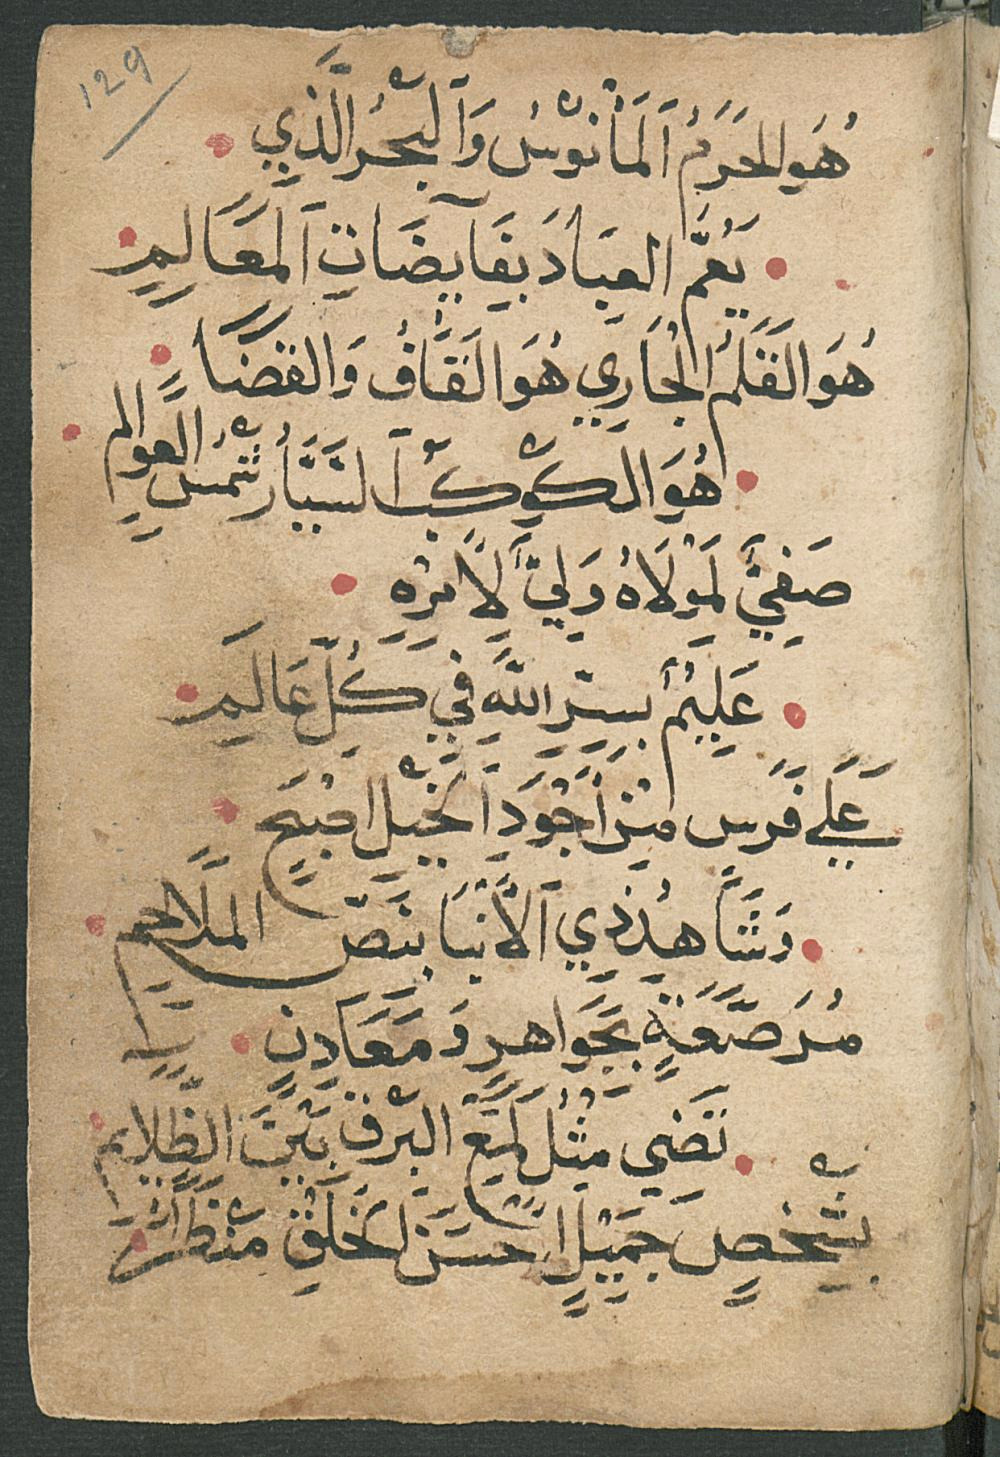 129
هُوَ الحَرَمُ اَلمَأنُوسُ وَاَلبَحْرُ الَّذِي
يَعُمَّ العِبَادَ بِفَايِضَاتِ اَلمَعَالِمِ
هُوَ القَلَمُ الجَارِي هُوَ القَافُ وَالقَضَا
هُوَ الكَوكَبُ اَلسَّيَّارُ شَمْسُ العَوَالِمِ
صَفِيٌّ لِمَوْلَاهُ وَلِيٌّ لِأَمْرِهِ
عَلِيْمٌ بِسِرِّ اللَّهِ فِي كُلِّ عَالَمِ
عَلَى فَرَسٍ مِنْ أَجْوَدِ اَلخَيْلِ اصْبَحِ
وَشَاهِدْ ذِي اَلأَنْبَا بِنَصِّ المَلَاحِمِ
مُرَصَّعَةٍ بِجَوَاهِرٍ وَمَعَادِنٍ
تَضِي مِثْلَ لَمْعِ البَرْقِ بَيْنَ الظَّلَايِمِ
بِشَخْصٍ جَمِيْلٍ احْسَنَ الخَلْقِ مَنْظَرًا